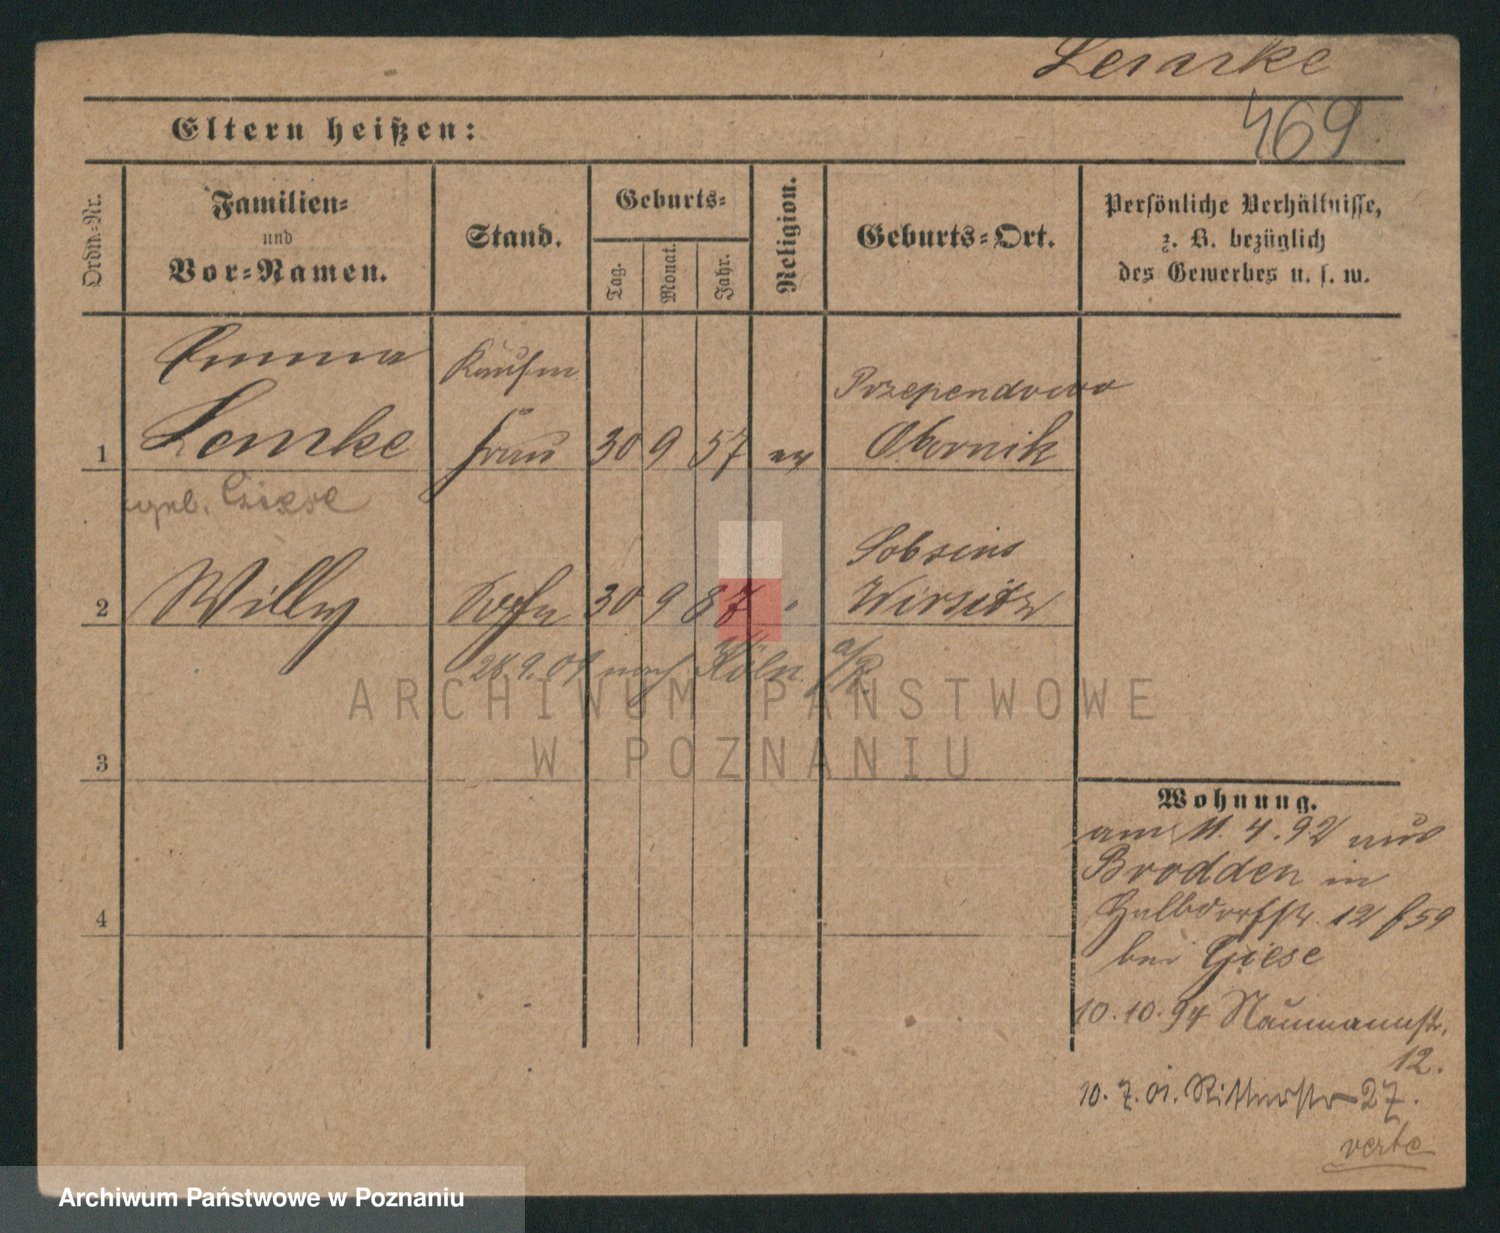 Lemke
469
Eltern heißen:
Ordn.-Nr.
Familien-
und
Vor-Namen.
Stand.
Geburts-
Tag.
Monat.
Jahr.
Religion.
Geburts-Ort.
Persönliche Verhältnisse,
z. B. bezüglich
des Gewerbes u. s. w.
Emma Kaufm Przependowo
1 Lemke frau 30 9 57 ev Obornik
geb. Giese
Sobsens
2 Willy Sohn 30 9 87 Wirsitz
28.9.01 nach Köln a/R.
ARCHIWUM PAŃSTWOWE
W POZNANIU
3
4
Wohnung.
am 11.4.92 aus
Brodden in
Halbdorfstr. 12 f. 59
bei Giese
10.10.94 Naumannstr.
12.
10.7.01. Ritterstr 27.
verte
Archiwum Państwowe w Poznaniu